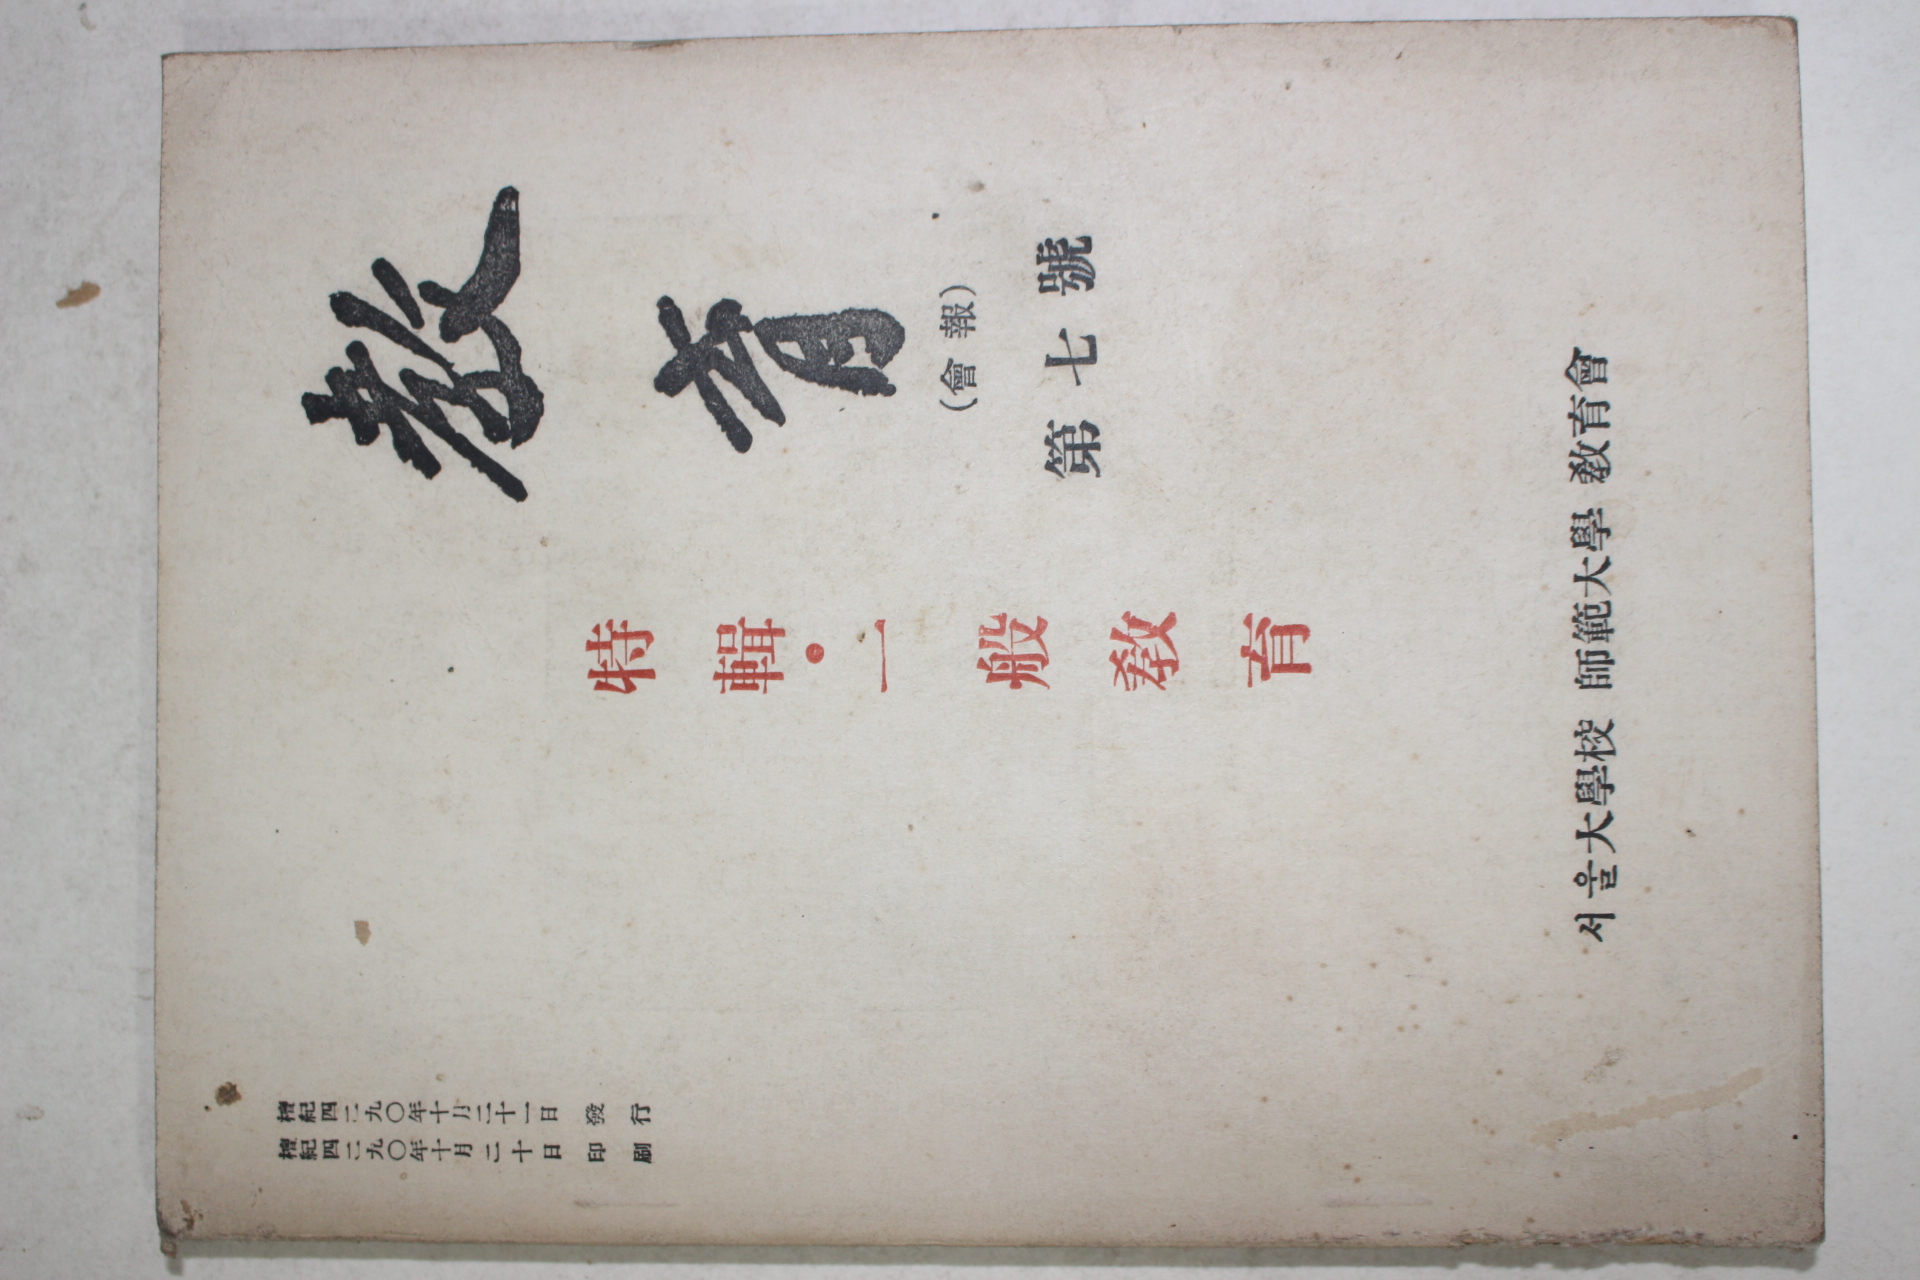 教育
(會報)
第七號
特輯·一般教育
서울大學校 師範大學 教育會
檀紀四二九〇年十月二十日 印刷
檀紀四二九〇年十月二十一日 發行